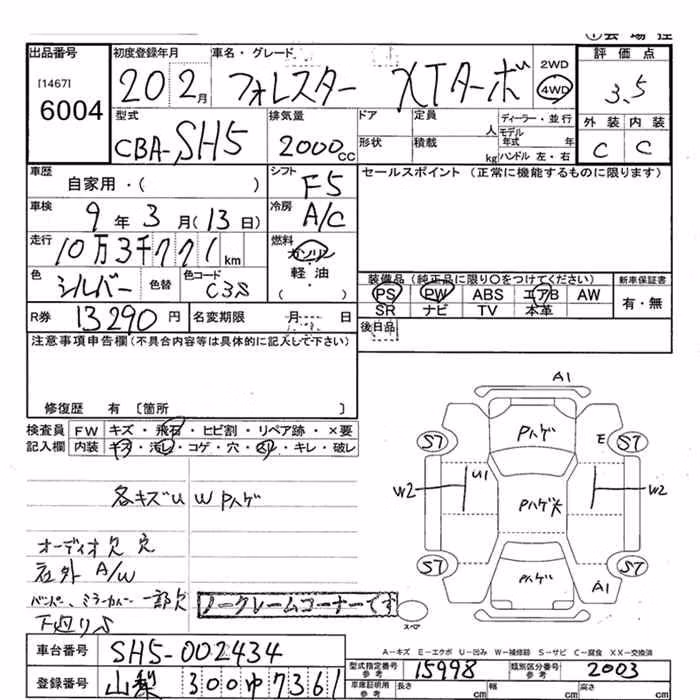 ① 会場控
出品番号 初度登録年月 車名・グレード 2WD 評価点
[1467] 20 2月 フォレスター XTターボ 4WD 3.5
6004
型式 排気量 ドア 定員 人 ディーラー・並行 外装 内装
CBA-SH5 2000CC 形状 積載 kg モデル年式 年 ハンドル 左・右 C C
車歴 自家用・( ) シフト F5 セールスポイント (正常に機能するものに限ります)
車検 9年3月(13日) 冷房 A/C
走行 10万3千771km 燃料 ガソリン
軽油・( )
色 シルバー 色替 色コード C3S 装備品 (純正品に限り○をつけてください) 新車保証書
PS PW ABS エアB AW 有・無
SR ナビ TV 本革
R券 13290円 名変期限 月 日 後日品
注意事項申告欄(不具合内容等は具体的に記入して下さい)
修復歴 有 〔箇所 〕
検査員記入欄 FW キズ・飛石・ヒビ割・リペア跡・×要
内装 キズ・汚レ・コゲ・穴・スレ・キレ・破レ
各キズU W Pハゲ
オーディオ欠 穴
社外 A/W
バンパー、ミラーカバー 一部欠
下廻りS
ノークレームコーナーです
A1
S7 Pハゲ E S7
W2 U1 Pハゲ大 W2
S7 Pハゲ A1 S7
スペア
A-キズ E-エクボ U-凹み W-補修跡 S-サビ C-腐食 XX-交換済
車台番号 SH5-002434
型式指定番号 参考 15998 類別区分番号 参考 2003
登録番号 山梨 300ゆ7361
車庫証明用 参考 長さ cm 幅 cm 高さ cm